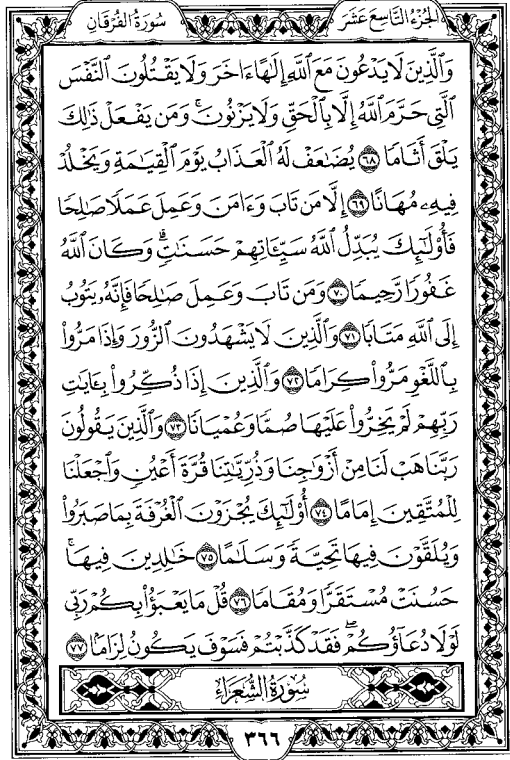 الجُزْءُ التَّاسِعَ عَشَرَ
سُورَةُ الفُرْقَانِ
وَٱلَّذِينَ لَا يَدْعُونَ مَعَ ٱللَّهِ إِلَٰهًا ءَاخَرَ وَلَا يَقْتُلُونَ ٱلنَّفْسَ
ٱلَّتِى حَرَّمَ ٱللَّهُ إِلَّا بِٱلْحَقِّ وَلَا يَزْنُونَ ۚ وَمَن يَفْعَلْ ذَٰلِكَ
يَلْقَ أَثَامًا ٦٨ يُضَٰعَفْ لَهُ ٱلْعَذَابُ يَوْمَ ٱلْقِيَٰمَةِ وَيَخْلُدْ
فِيهِۦ مُهَانًا ٦٩ إِلَّا مَن تَابَ وَءَامَنَ وَعَمِلَ عَمَلًا صَٰلِحًا
فَأُو۟لَٰٓئِكَ يُبَدِّلُ ٱللَّهُ سَيِّـَٔاتِهِمْ حَسَنَٰتٍ ۗ وَكَانَ ٱللَّهُ
غَفُورًا رَّحِيمًا ٧٠ وَمَن تَابَ وَعَمِلَ صَٰلِحًا فَإِنَّهُۥ يَتُوبُ
إِلَى ٱللَّهِ مَتَابًا ٧١ وَٱلَّذِينَ لَا يَشْهَدُونَ ٱلزُّورَ وَإِذَا مَرُّوا۟
بِٱللَّغْوِ مَرُّوا۟ كِرَامًا ٧٢ وَٱلَّذِينَ إِذَا ذُكِّرُوا۟ بِـَٔايَٰتِ
رَبِّهِمْ لَمْ يَخِرُّوا۟ عَلَيْهَا صُمًّا وَعُمْيَانًا ٧٣ وَٱلَّذِينَ يَقُولُونَ
رَبَّنَا هَبْ لَنَا مِنْ أَزْوَٰجِنَا وَذُرِّيَّٰتِنَا قُرَّةَ أَعْيُنٍ وَٱجْعَلْنَا
لِلْمُتَّقِينَ إِمَامًا ٧٤ أُو۟لَٰٓئِكَ يُجْزَوْنَ ٱلْغُرْفَةَ بِمَا صَبَرُوا۟
وَيُلَقَّوْنَ فِيهَا تَحِيَّةً وَسَلَٰمًا ٧٥ خَٰلِدِينَ فِيهَا ۚ
حَسُنَتْ مُسْتَقَرًّا وَمُقَامًا ٧٦ قُلْ مَا يَعْبَؤُا۟ بِكُمْ رَبِّى
لَوْلَا دُعَآؤُكُمْ ۖ فَقَدْ كَذَّبْتُمْ فَسَوْفَ يَكُونُ لِزَامًۢا ٧٧
سُورَةُ الشُّعَرَاءِ
٣٦٦